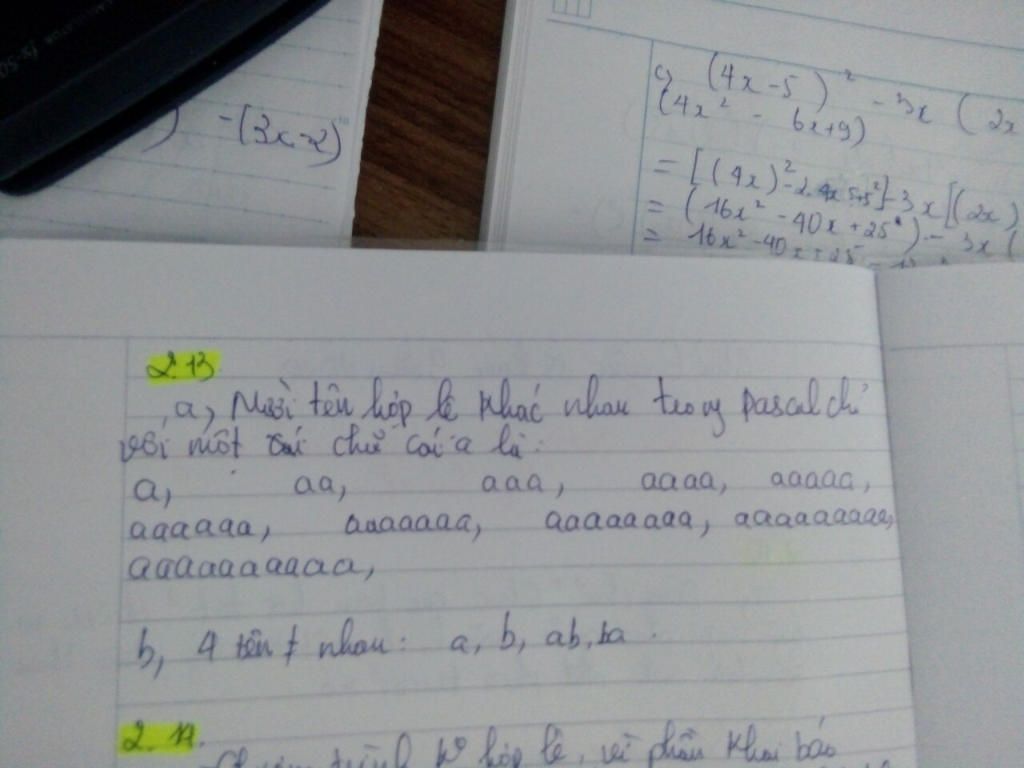 fx-50
) -(3x-2)
c, (4x-5)² - 3x (2x
(4x² - 6x+9)
= [(4x)²-2.4x.5+5²]-3x[(2x)
= (16x² - 40x + 25²) - 3x (
= 16x²-40x+25 -
2.13
a, Mười tên hợp lệ khác nhau trong pascal chỉ
với một chữ cái a là:
a, aa, aaa, aaaa, aaaaa,
aaaaaa, aaaaaaa, aaaaaaaa, aaaaaaaaa,
aaaaaaaaaa,
b, 4 tên ≠ nhau: a, b, ab, ba.
2.14.
Chương trình k° hợp lệ, vì phần khai báo